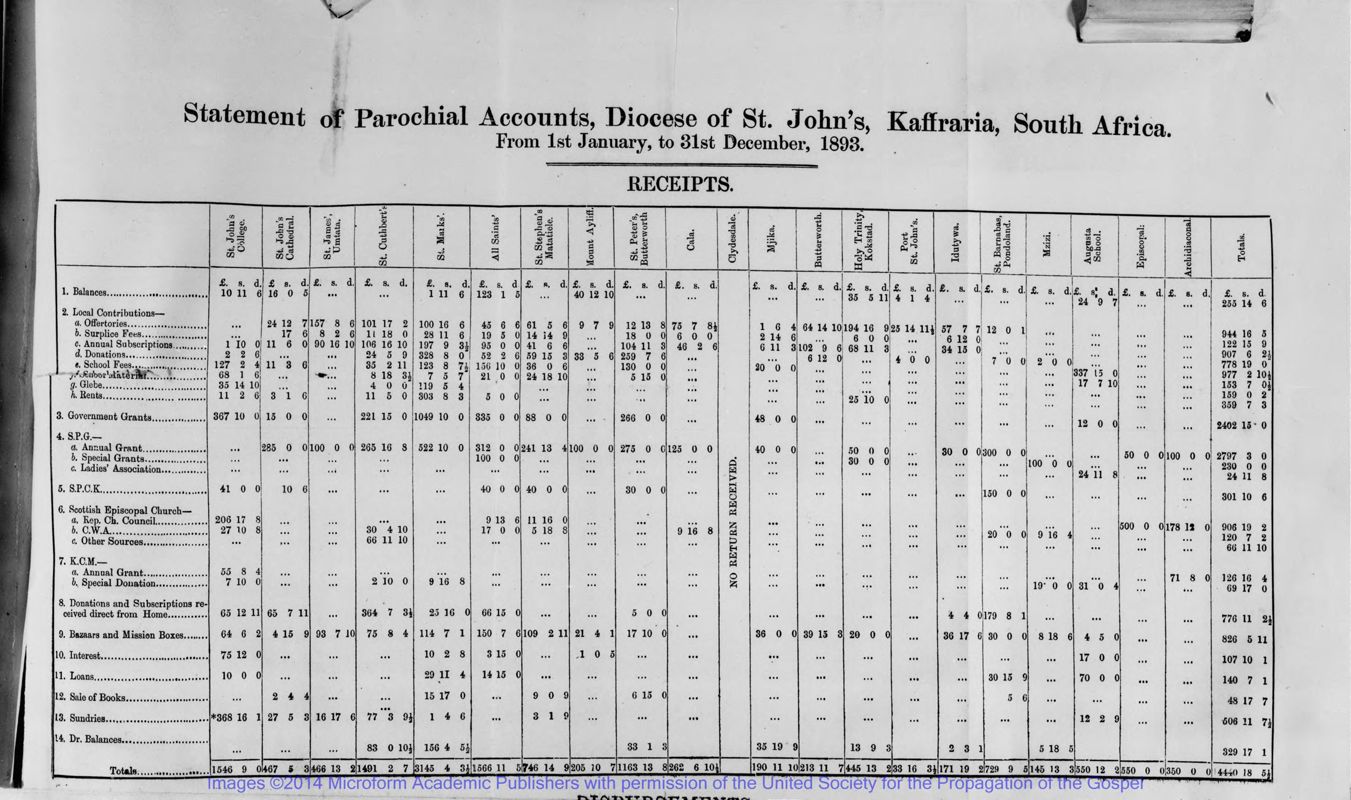 Statement of Parochial Accounts, Diocese of St. John's, Kaffraria, South Africa.
From 1st January, to 31st December, 1893.
RECEIPTS.
St. John's College. St. John's Cathedral. St. James', Umtata. St. Cuthbert's St. Marks'. All Saints' St. Stephen's Matatiele. Mount Ayliff. St. Peter's, Butterworth Cala. Clydesdale. Mjika. Butterworth. Holy Trinity, Kokstad. Port St. John's. Idutywa. St. Barnabas, Pondoland. Mzizi. Augusta School. Episcopal: Archidiaconal. Totals.
£. s. d. £. s. d. £. s. d. £. s. d. £. s. d. £. s. d. £. s. d. £. s. d. £. s. d. £. s. d. £. s. d. £. s. d. £. s. d. £. s. d. £. s. d. £. s. d. £. s. d. £. s. d. £. s. d. £. s. d. £. s. d.
1. Balances 10 11 6 16 0 5 ... ... 1 11 6 123 1 5 ... 40 12 10 ... ... ... ... 35 5 11 4 1 4 ... ... ... 24 9 7 ... ... 255 14 6
2. Local Contributions—
a. Offertories ... 24 12 7 157 8 6 101 17 2 100 16 6 45 6 6 61 5 6 9 7 9 12 13 8 75 7 8½ 1 6 4 64 14 10 194 16 9 25 14 11½ 57 7 7 12 0 1 ... ... ... ... 944 16 5
b. Surplice Fees ... 17 6 8 2 6 11 18 0 28 11 6 19 5 0 14 14 9 ... 18 0 0 6 0 0 2 14 6 ... 6 0 0 ... 6 12 0 ... ... ... ... ... 122 15 9
c. Annual Subscriptions 1 10 0 11 6 0 90 16 10 106 16 10 197 9 3½ 95 0 0 41 6 6 ... 104 11 3 46 2 6 6 11 3 102 9 6 68 11 3 ... 34 15 0 ... ... ... ... ... 907 6 2½
d. Donations 2 2 6 ... ... 24 5 9 328 8 0 52 2 6 59 15 3 33 5 6 259 7 6 ... ... 6 12 0 ... 4 0 0 ... 7 0 0 2 0 0 ... ... ... 778 19 0
e. School Fees 127 2 4 11 3 6 ... 35 2 11 123 8 7½ 156 10 0 36 0 6 ... 130 0 0 ... 20 0 0 ... ... ... ... ... ... 337 15 0 ... ... 977 2 10½
68 1 6 ... ... 8 18 3½ 7 5 7 21 0 0 24 18 10 ... 5 15 0 ... ... ... ... ... ... ... ... 17 7 10 ... ... 153 7 0½
g. Glebe 35 14 10 4 0 0 119 5 4 ... 159 0 2
h. Rents 11 2 6 3 1 6 11 5 0 303 8 3 5 0 0 25 10 0 ... 359 7 3
3. Government Grants 367 10 0 15 0 0 221 15 0 1049 10 0 335 0 0 88 0 0 ... 266 0 0 48 0 0 ... ... ... ... ... ... 12 0 0 ... ... 2402 15 0
4. S.P.G.—
a. Annual Grant ... 285 0 0 100 0 0 265 16 8 522 10 0 312 0 0 241 13 4 100 0 0 275 0 0 125 0 0 40 0 0 ... 50 0 0 ... 30 0 0 300 0 0 ... ... 50 0 0 100 0 0 2797 3 0
b. Special Grants ... ... ... ... ... 100 0 0 ... ... ... ... ... ... 30 0 0 ... ... ... 100 0 0 ... ... ... 230 0 0
c. Ladies' Association ... ... ... ... ... ... ... ... ... ... 24 11 8 ... ... 24 11 8
5. S.P.C.K. 41 0 0 10 6 ... ... ... 40 0 0 40 0 0 ... 30 0 0 ... ... ... ... ... ... 150 0 0 ... ... ... ... 301 10 6
6. Scottish Episcopal Church—
a. Rep. Ch. Council 206 17 8 ... ... ... ... 9 13 6 11 16 0 ... ... ... ... ... ... ... ... ... ... ... 500 0 0 178 12 0 906 19 2
b. C.W.A. 27 10 8 ... ... 30 4 10 ... 17 0 0 5 18 8 ... ... 9 16 8 ... ... ... ... ... 20 0 0 9 16 4 ... ... ... 120 7 2
c. Other Sources ... ... ... 66 11 10 ... ... ... ... ... ... ... 66 11 10
7. K.C.M.—
a. Annual Grant 55 8 4 ... ... ... ... ... ... ... ... ... 71 8 0 126 16 4
b. Special Donation 7 10 0 ... ... 2 10 0 9 16 8 ... ... ... ... ... ... ... ... ... ... ... 19 0 0 31 0 4 ... 69 17 0
8. Donations and Subscriptions re-
ceived direct from Home 65 12 11 65 7 11 ... 364 7 3½ 25 16 0 66 15 0 ... ... 5 0 0 ... ... ... ... ... 4 4 0 179 8 1 ... ... ... ... 776 11 2½
9. Bazaars and Mission Boxes 64 6 2 4 15 9 93 7 10 75 8 4 114 7 1 150 7 6 109 2 11 21 4 1 17 10 0 ... 36 0 0 39 15 3 20 0 0 ... 36 17 6 30 0 0 8 18 6 4 5 0 ... ... 826 5 11
10. Interest 75 12 0 ... ... ... 10 2 8 3 15 0 ... 1 0 5 ... ... ... ... ... ... ... ... ... 17 0 0 ... ... 107 10 1
11. Loans 10 0 0 ... ... ... 29 11 4 14 15 0 ... ... ... ... ... ... ... ... ... 30 15 9 ... 70 0 0 ... ... 140 7 1
12. Sale of Books ... 2 4 4 ... ... 15 17 0 ... 9 0 9 ... 6 15 0 ... ... ... ... ... ... 5 6 ... ... ... ... 48 17 7
13. Sundries *368 16 1 27 5 3 16 17 6 77 3 9½ 1 4 6 ... 3 1 9 ... ... ... ... ... ... ... ... ... ... 12 2 9 ... ... 506 11 7½
14. Dr. Balances ... ... ... 83 0 10½ 156 4 5½ ... ... ... 33 1 3 ... 35 19 9 ... 13 9 3 ... 2 3 1 ... 5 18 5 ... ... ... 329 17 1
Totals 1546 9 0 467 5 3 466 13 2 1491 2 7 3145 4 3½ 1566 11 5 746 14 9 205 10 7 1163 13 8 262 6 10½ 190 11 10 213 11 7 445 13 2 33 16 3½ 171 19 2 729 9 5 145 13 3 550 12 2 550 0 0 350 0 0 14440 18 5½
NO RETURN RECEIVED.
Images ©2014 Microform Academic Publishers with permission of the United Society for the Propagation of the Gospel
DISBURSEMENTS